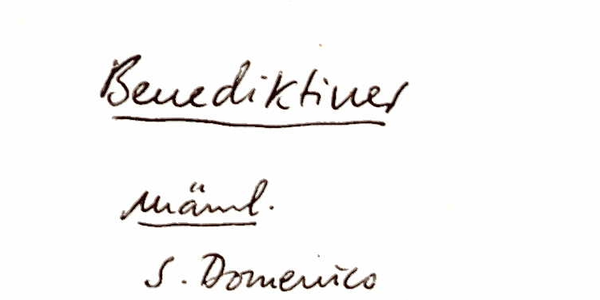 Benediktiner
Männl.
S. Domenico